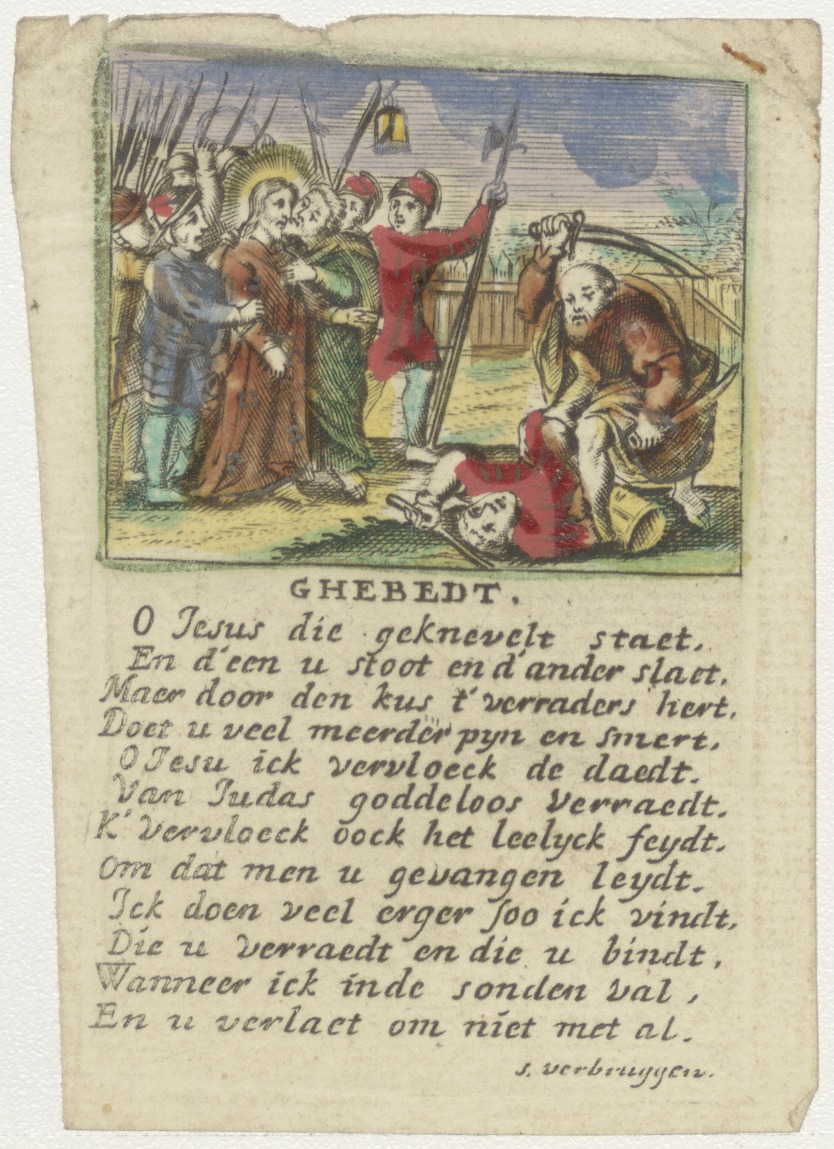 GHEBEDT.
O Jesus die geknevelt staet.
En d'een u stoot en d'ander slaet.
Maer door den kus t'verraders hert.
Doet u veel meerder pyn en smert.
O Jesu ick vervloeck de daedt.
Van Judas goddeloos verraedt.
K'vervloeck oock het leelyck feydt.
Om dat men u gevangen leydt.
Ick doen veel erger soo ick vindt.
Die u verraedt en die u bindt.
Wanneer ick inde sonden val,
En u verlaet om niet met al.
s. verbruggen.